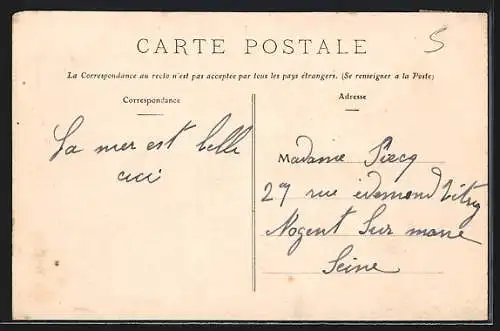 CARTE POSTALE
5
La Correspondance au recto n'est pas acceptée par tous les pays étrangers. (Se renseigner à la Poste)
Correspondance
La mer est belle
ici
Adresse
Madame
27 rue edemond Vitry
Nogent Sur marne
Seine